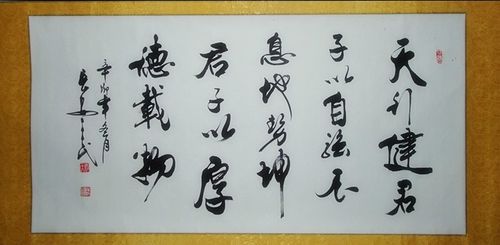 天行健君
子以自強不
息地勢坤
君子以厚
德載物
辛卯年冬月